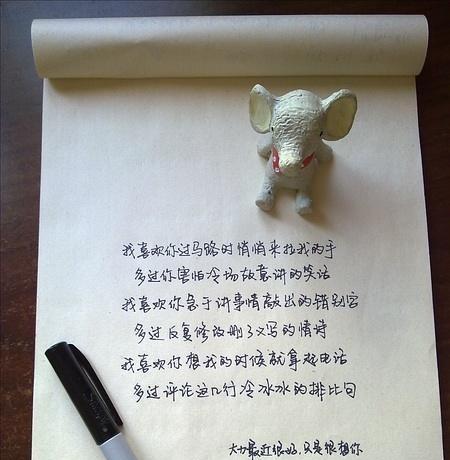 我喜欢你过马路时悄悄来拉我的手
多过你害怕冷场故意讲的笑话
我喜欢你急于讲事情敲出的错别字
多过反复修改删了又写的情诗
我喜欢你想我的时候就拿起电话
多过评论这几行冷冰冰的排比句
大力最近很好,只是很想你